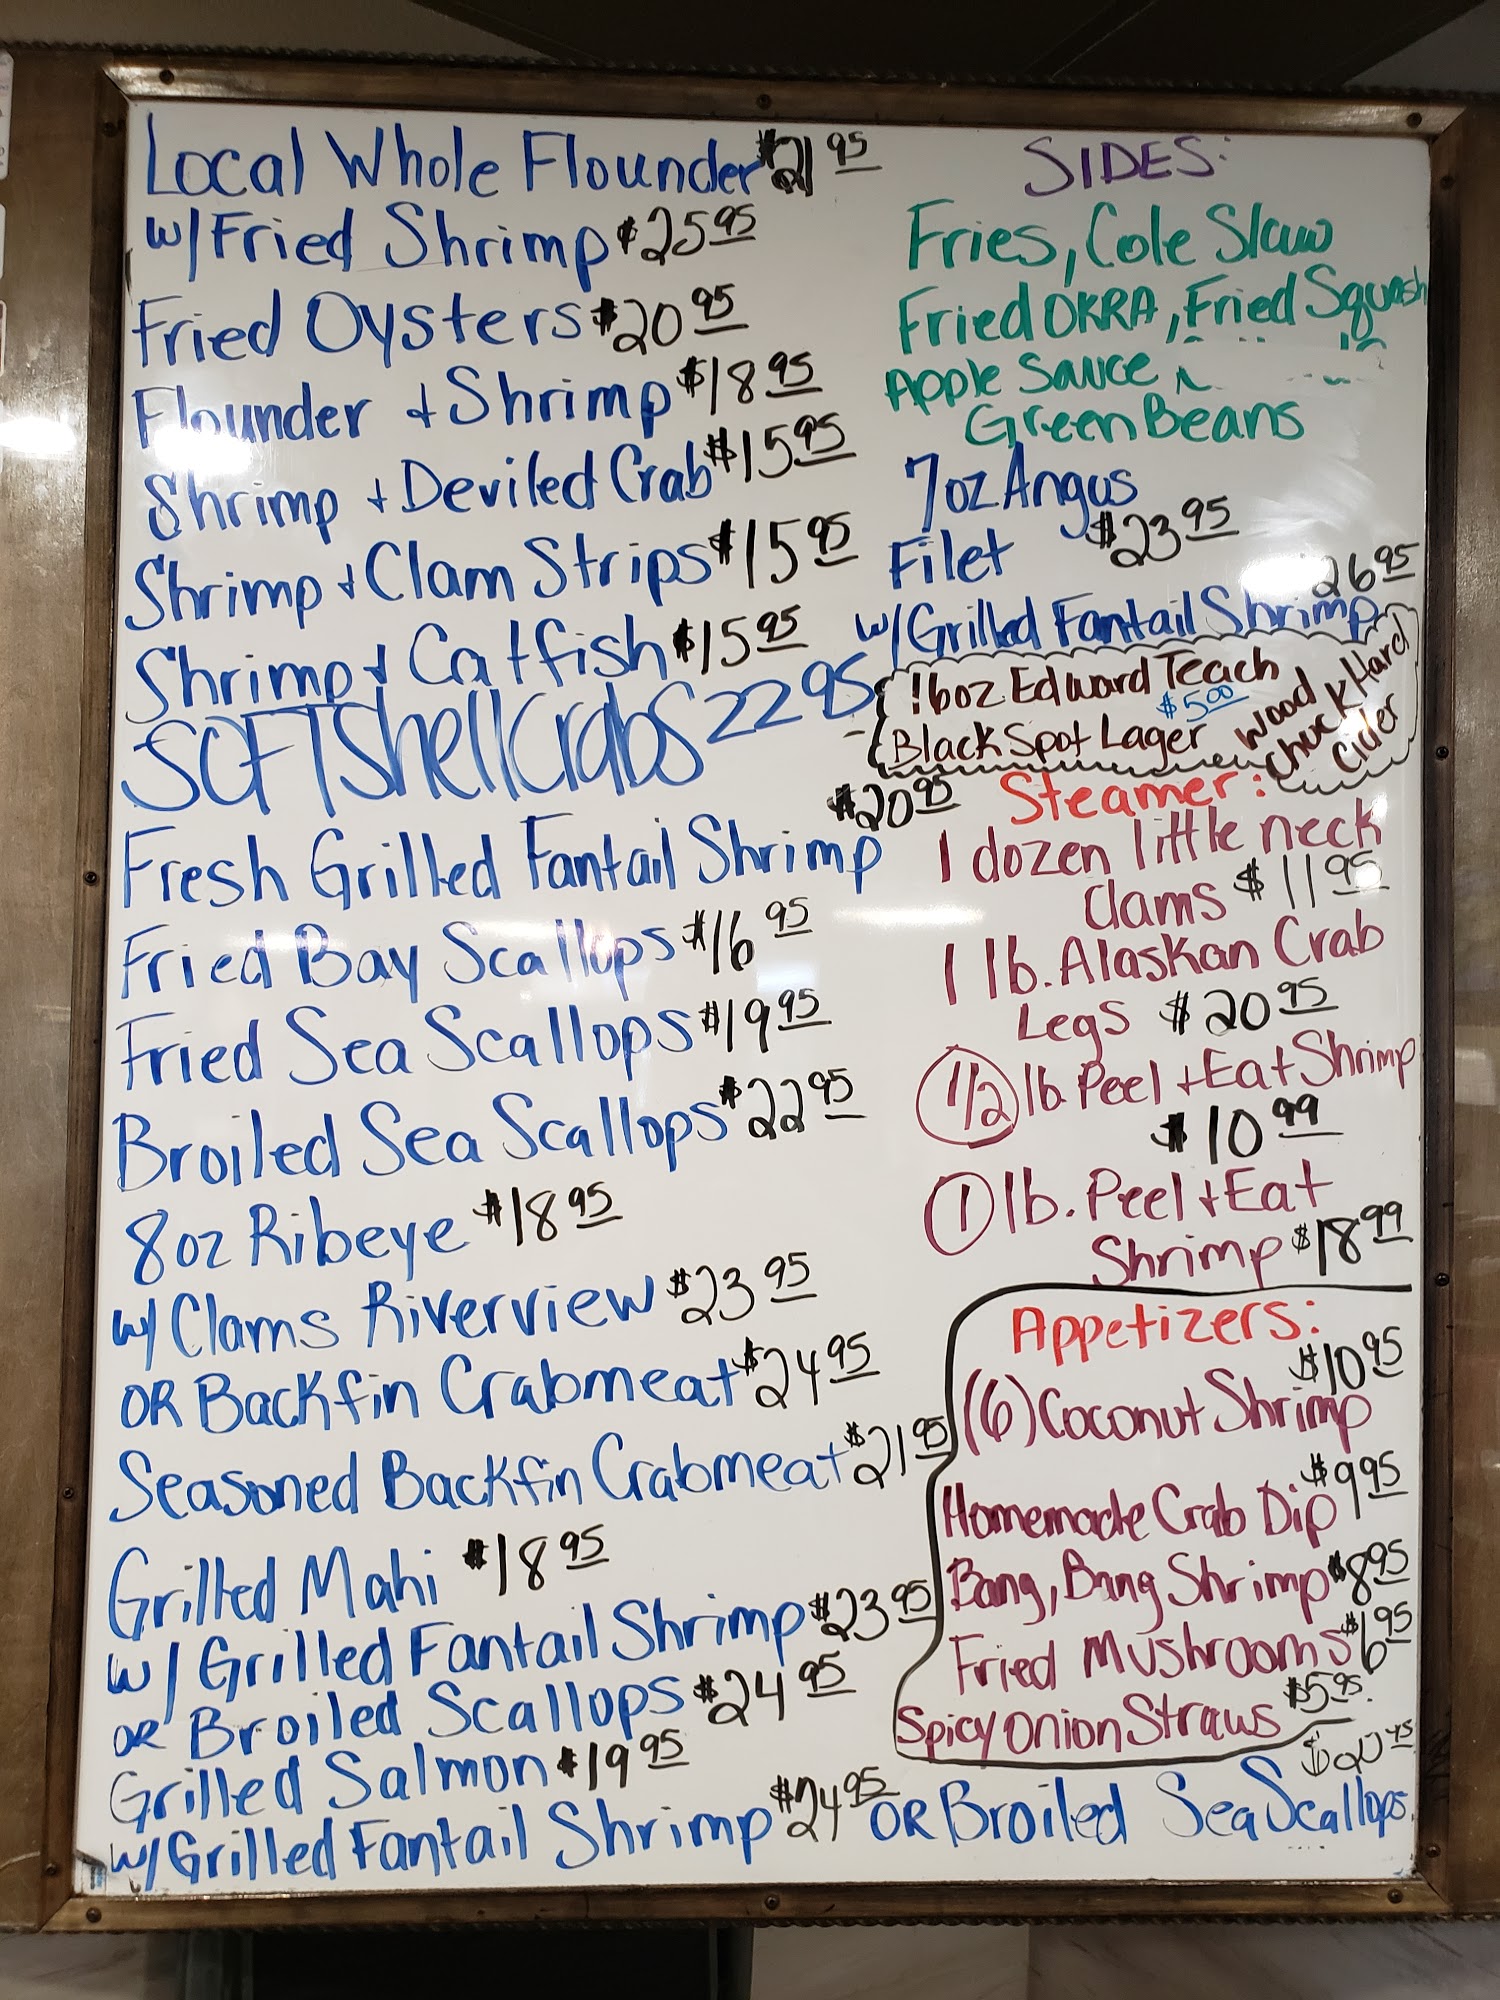 Local Whole Flounder $21 95
w/ Fried Shrimp $25 95
Fried Oysters $20 95
Flounder + Shrimp $18 95
Shrimp + Deviled Crab $15 95
Shrimp + Clam Strips $15 95
Shrimp + Catfish $15 95
SOFTShell Crabs 22 95
$20 95
Fresh Grilled Fantail Shrimp
Fried Bay Scallops $16 95
Fried Sea Scallops $19 95
Broiled Sea Scallops $22 95
8oz Ribeye $18 95
w/ Clams Riverview $23 95
OR Backfin Crabmeat $24 95
Seasoned Backfin Crabmeat $21 95
Grilled Mahi $18 95
w/ Grilled Fantail Shrimp $23 95
OR Broiled Scallops $24 95
Grilled Salmon $19 95
w/ Grilled Fantail Shrimp $24 95 OR Broiled Sea Scallops
SIDES:
Fries, Cole Slaw
Fried OKRA, Fried Squash
Apple Sauce,
Green Beans
7oz Angus
Filet $23 95
26 95
w/ Grilled Fantail Shrimp
16oz Edward Teach
$5 00
Black Spot Lager
Wood
Chuck Hard
Cider
Steamer:
1 dozen little neck
Clams $11 95
1 lb. Alaskan Crab
Legs $20 95
1/2 lb Peel + Eat Shrimp
$10 99
1 lb. Peel + Eat
Shrimp $18 99
Appetizers:
$10 95
(6) Coconut Shrimp
$9 95
Homemade Crab Dip
Bang, Bang Shrimp $8 95
Fried Mushrooms $6 95
Spicy Onion Straws $5 95